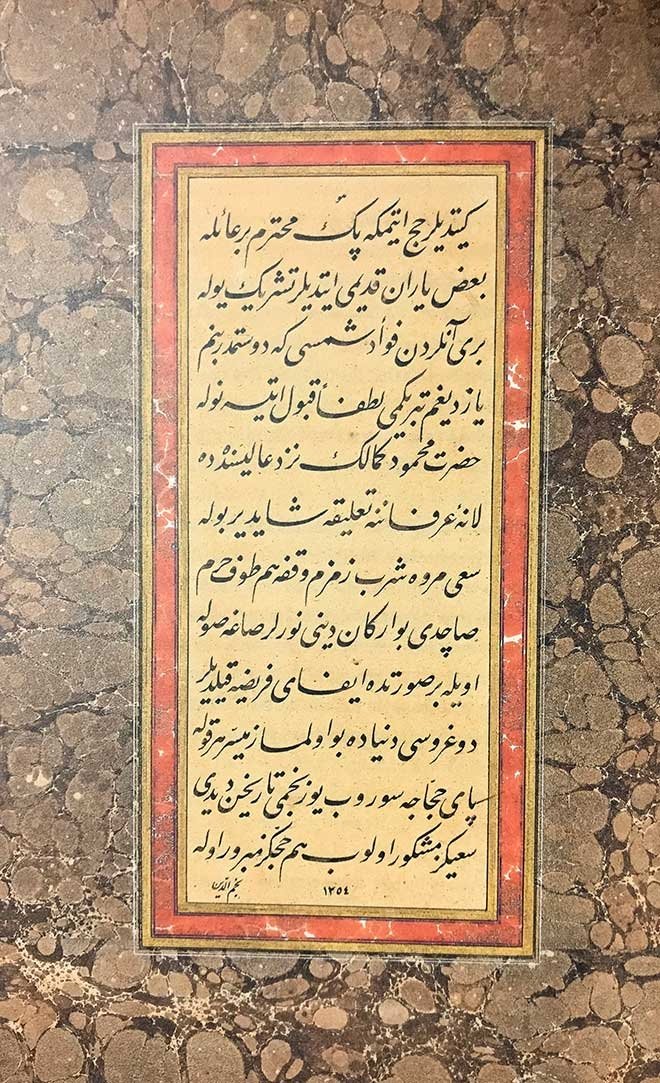 کیتدیلر حج ایتمکه پک محترم بر عائله
بعض یاران قدیمی ایتدیلر تشریک یوله
بری آنلردن فوأد شمسی که دوستمدر بنم
یازدیغم تبریکمی لطفاً قبول ایتسه نوله
حضرت محمود کمالک نزد عالیسنده ده
لانهٔ عرفاننه تعلیقه شاید یر بوله
سعی مروه شرب زمزم وقفه هم طوف حرم
صاچدی بو ارکان دینی نورلر صاغه صوله
اویله بر صورتده ایفای فریضه قیلدیلر
دوغروسی دنیاده بو اولماز میسر هر قوله
پای حجاجه سوروب یوز نجمی تاریخن دیدی
سعیکز مشکور اولوب هم حجکز مبرور اوله
۱۲۵٤
نجم الدین